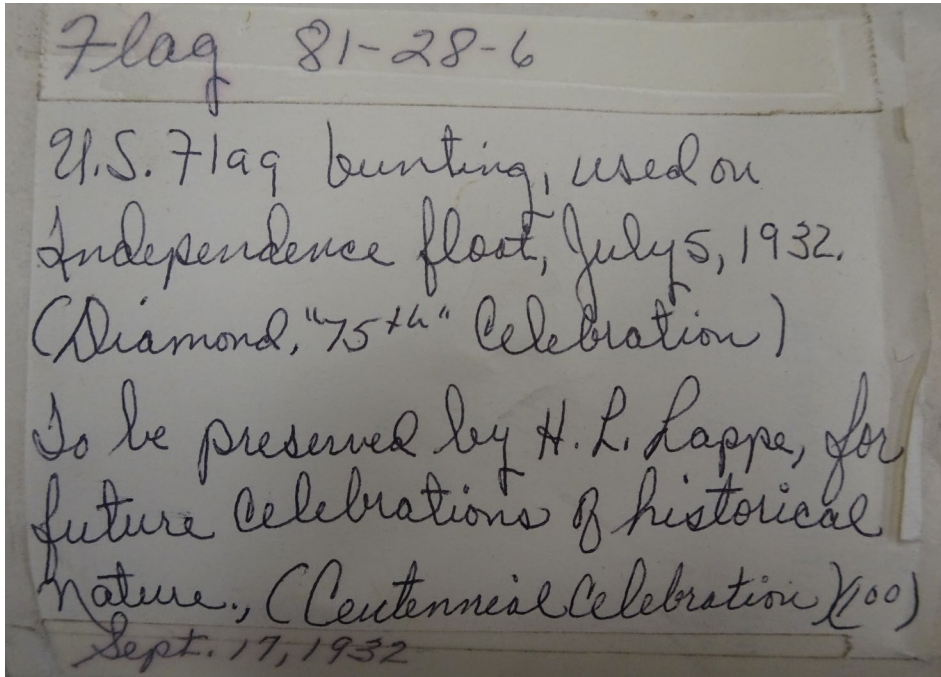 Flag 81-28-6
U.S. Flag bunting, used on
Independence float, July 5, 1932.
(Diamond, "75th" Celebration)
To be preserved by H. L. Lappe, for
future Celebrations of historical
nature., (Centennial Celebration)(100)
Sept. 17, 1932